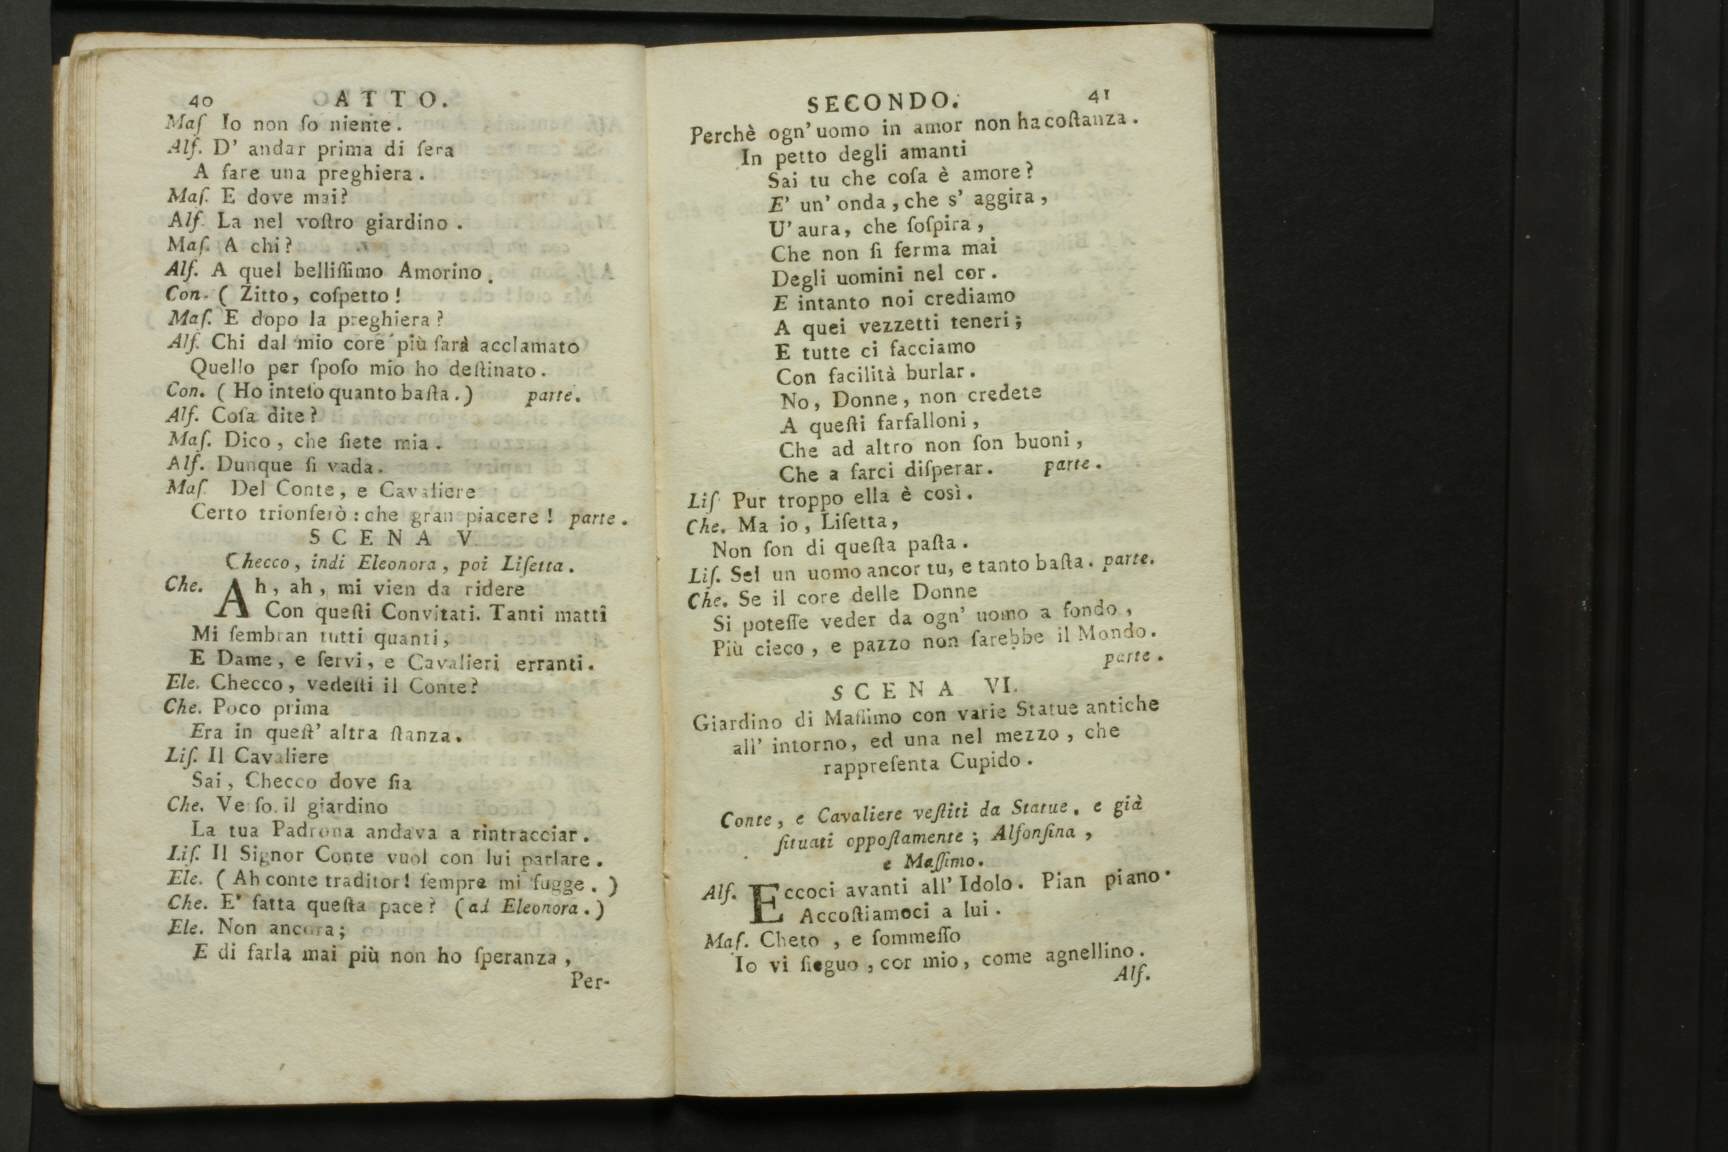 40 ATTO.
Maſ Io non ſo niente.
Alſ. D' andar prima di ſera
A fare una preghiera.
Maſ. E dove mai?
Alſ. La nel voſtro giardino.
Maſ. A chi?
Alſ. A quel belliſſimo Amorino.
Con. ( Zitto, coſpetto!
Maſ. E dopo la preghiera?
Alſ. Chi dal mio core più ſarà acclamato
Quello per ſpoſo mio ho deſtinato.
Con. ( Ho inteſo quanto baſta.) parte.
Alſ. Coſa dite?
Maſ. Dico, che ſiete mia.
Alſ. Dunque ſi vada.
Maſ Del Conte, e Cavaliere
Certo trionferò: che gran piacere! parte.
SCENA V.
Checco, indi Eleonora, poi Liſetta.
Che. Ah, ah, mi vien da ridere
Con queſti Convitati. Tanti matti
Mi ſembran tutti quanti,
E Dame, e ſervi, e Cavalieri erranti.
Ele. Checco, vedeſti il Conte?
Che. Poco prima
Era in queſt' altra ſtanza.
Liſ. Il Cavaliere
Sai, Checco dove ſia
Che. Verſo il giardino
La tua Padrona andava a rintracciar.
Liſ. Il Signor Conte vuol con lui parlare.
Ele. ( Ah conte traditor! ſempre mi fugge. )
Che. E' fatta queſta pace? (ad Eleonora.)
Ele. Non ancora;
E di farla mai più non ho ſperanza,
Per-
SECONDO. 41
Perchè ogn' uomo in amor non ha coſtanza.
In petto degli amanti
Sai tu che coſa è amore?
E' un' onda, che s' aggira,
U' aura, che ſoſpira,
Che non ſi ferma mai
Degli uomini nel cor.
E intanto noi crediamo
A quei vezzetti teneri;
E tutte ci facciamo
Con facilità burlar.
No, Donne, non credete
A queſti farfalloni,
Che ad altro non ſon buoni,
Che a farci diſperar. parte.
Liſ Pur troppo ella è così.
Che. Ma io, Liſetta,
Non ſon di queſta paſta.
Liſ. Sei un uomo ancor tu, e tanto baſta. parte.
Che. Se il core delle Donne
Si poteſſe veder da ogn' uomo a fondo,
Più cieco, e pazzo non ſarebbe il Mondo.
parte.
SCENA VI.
Giardino di Maſſimo con varie Statue antiche
all' intorno, ed una nel mezzo, che
rappreſenta Cupido.
Conte, e Cavaliere veſtiti da Statue, e già
ſituati oppoſtamente; Alfonſina,
e Maſſimo.
Alſ. Eccoci avanti all' Idolo. Pian piano.
Accoſtiamoci a lui.
Maſ. Cheto, e ſommeſſo
Io vi ſieguo, cor mio, come agnellino.
Alſ.